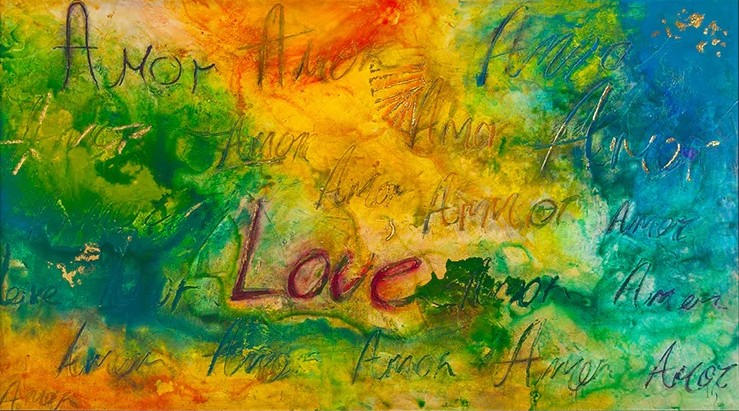 Amor Amor Amor
Amor Amor Amor Amor
Amor Ammor Amor
Love Amor Amen
Amor Amor Amor Amor Amor
Amor